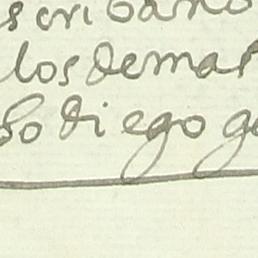 escribano
los demas
ho diego g